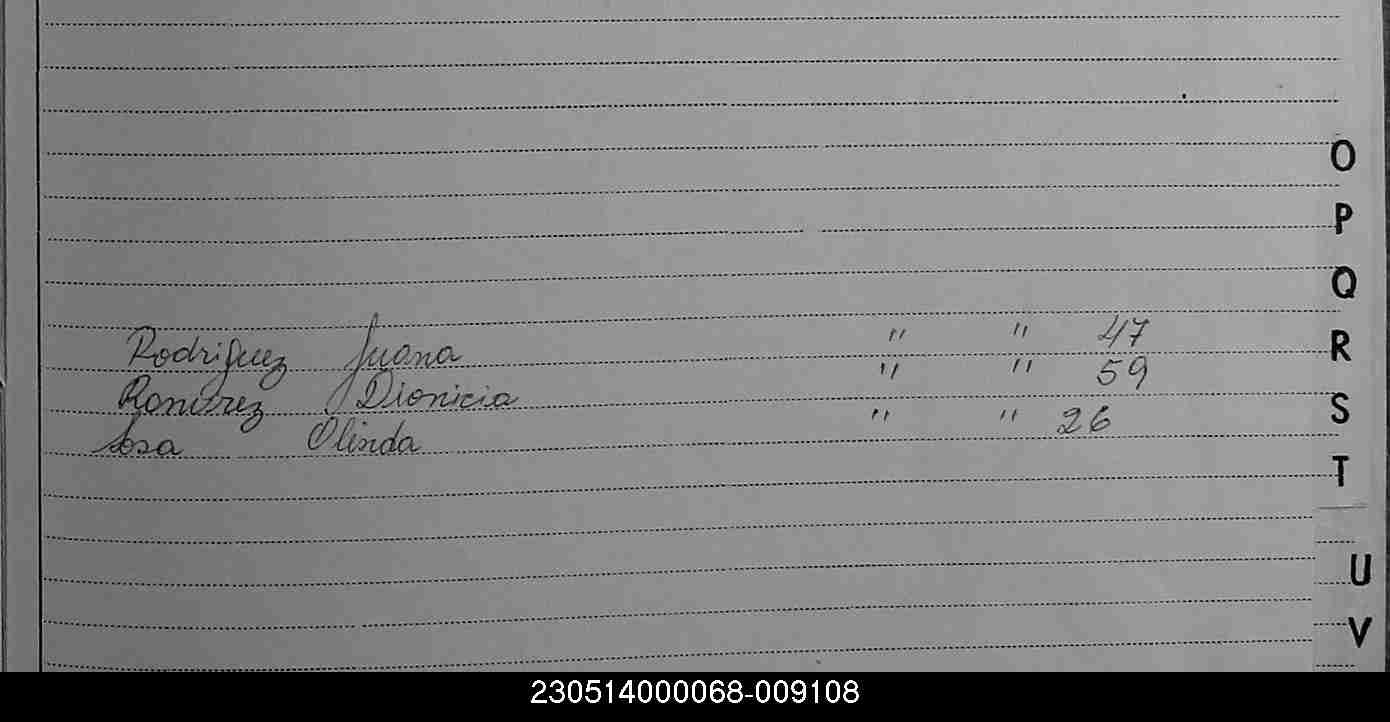 O
P
Q
Rodriguez Juana " " 47
R
Ramirez Dionicia " " 59
S
Sosa Olinda " " 26
T
U
V
230514000068-009108